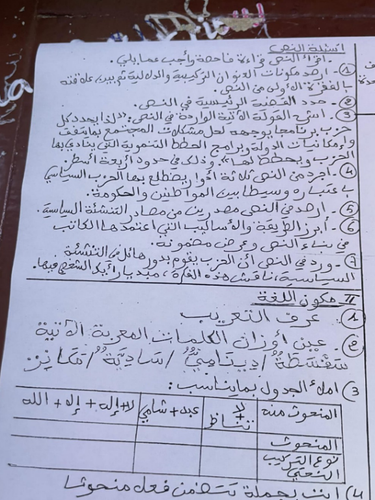 أسئلة النص
- اقرأ النص قراءة فاحصة وأجب عما يلي.
① - ارصد مكونات العنوان التركيبية والدلالية ثم بين علاقته
بالفقرة الأولى من النص.
② - حدد القضية الرئيسية في النص.
③ - اشرح القولة الآتية الواردة في النص: «لذا يحدد كل
حزب برنامجا يوجهه لحل مشكلات المجتمع بما يتفق
وإمكانيات الدولة وبرامج الخطط التنموية التي ينادي بها
الحزب ويخطط لها». وذلك في حدود أربعة أسطر.
④ - اجرد من النص ثلاثة أدوار يضطلع بها الحزب السياسي
باعتباره وسيطا بين المواطنين والحكومة.
⑤ - ارصد في النص مصدرين من مصادر التنشئة السياسية.
⑥ - أبرز الطريقة والأساليب التي اعتمدها الكاتب
في بناء النص وعرض مضمونه.
⑦ - ورد في النص أن الحزب يقوم بدور هائل في التنشئة
السياسية، ناقش هذه الفكرة، مبديا رأيك الشخصي فيها.
II - مكون اللغة
① - عرف التعريب
② - عين أوزان الكلمات المعربة الآتية
سفسطة / ديناميّ / ساديّة / مانيز
③ املأ الجدول بما يناسب:
المنحوث منه | لا + نشاط | عبد + شامي | لا + إله + إلا + الله
المنحوث
نوع التركيب النحتي
④ ائت بجملة تتضمن فعلا منحوثا